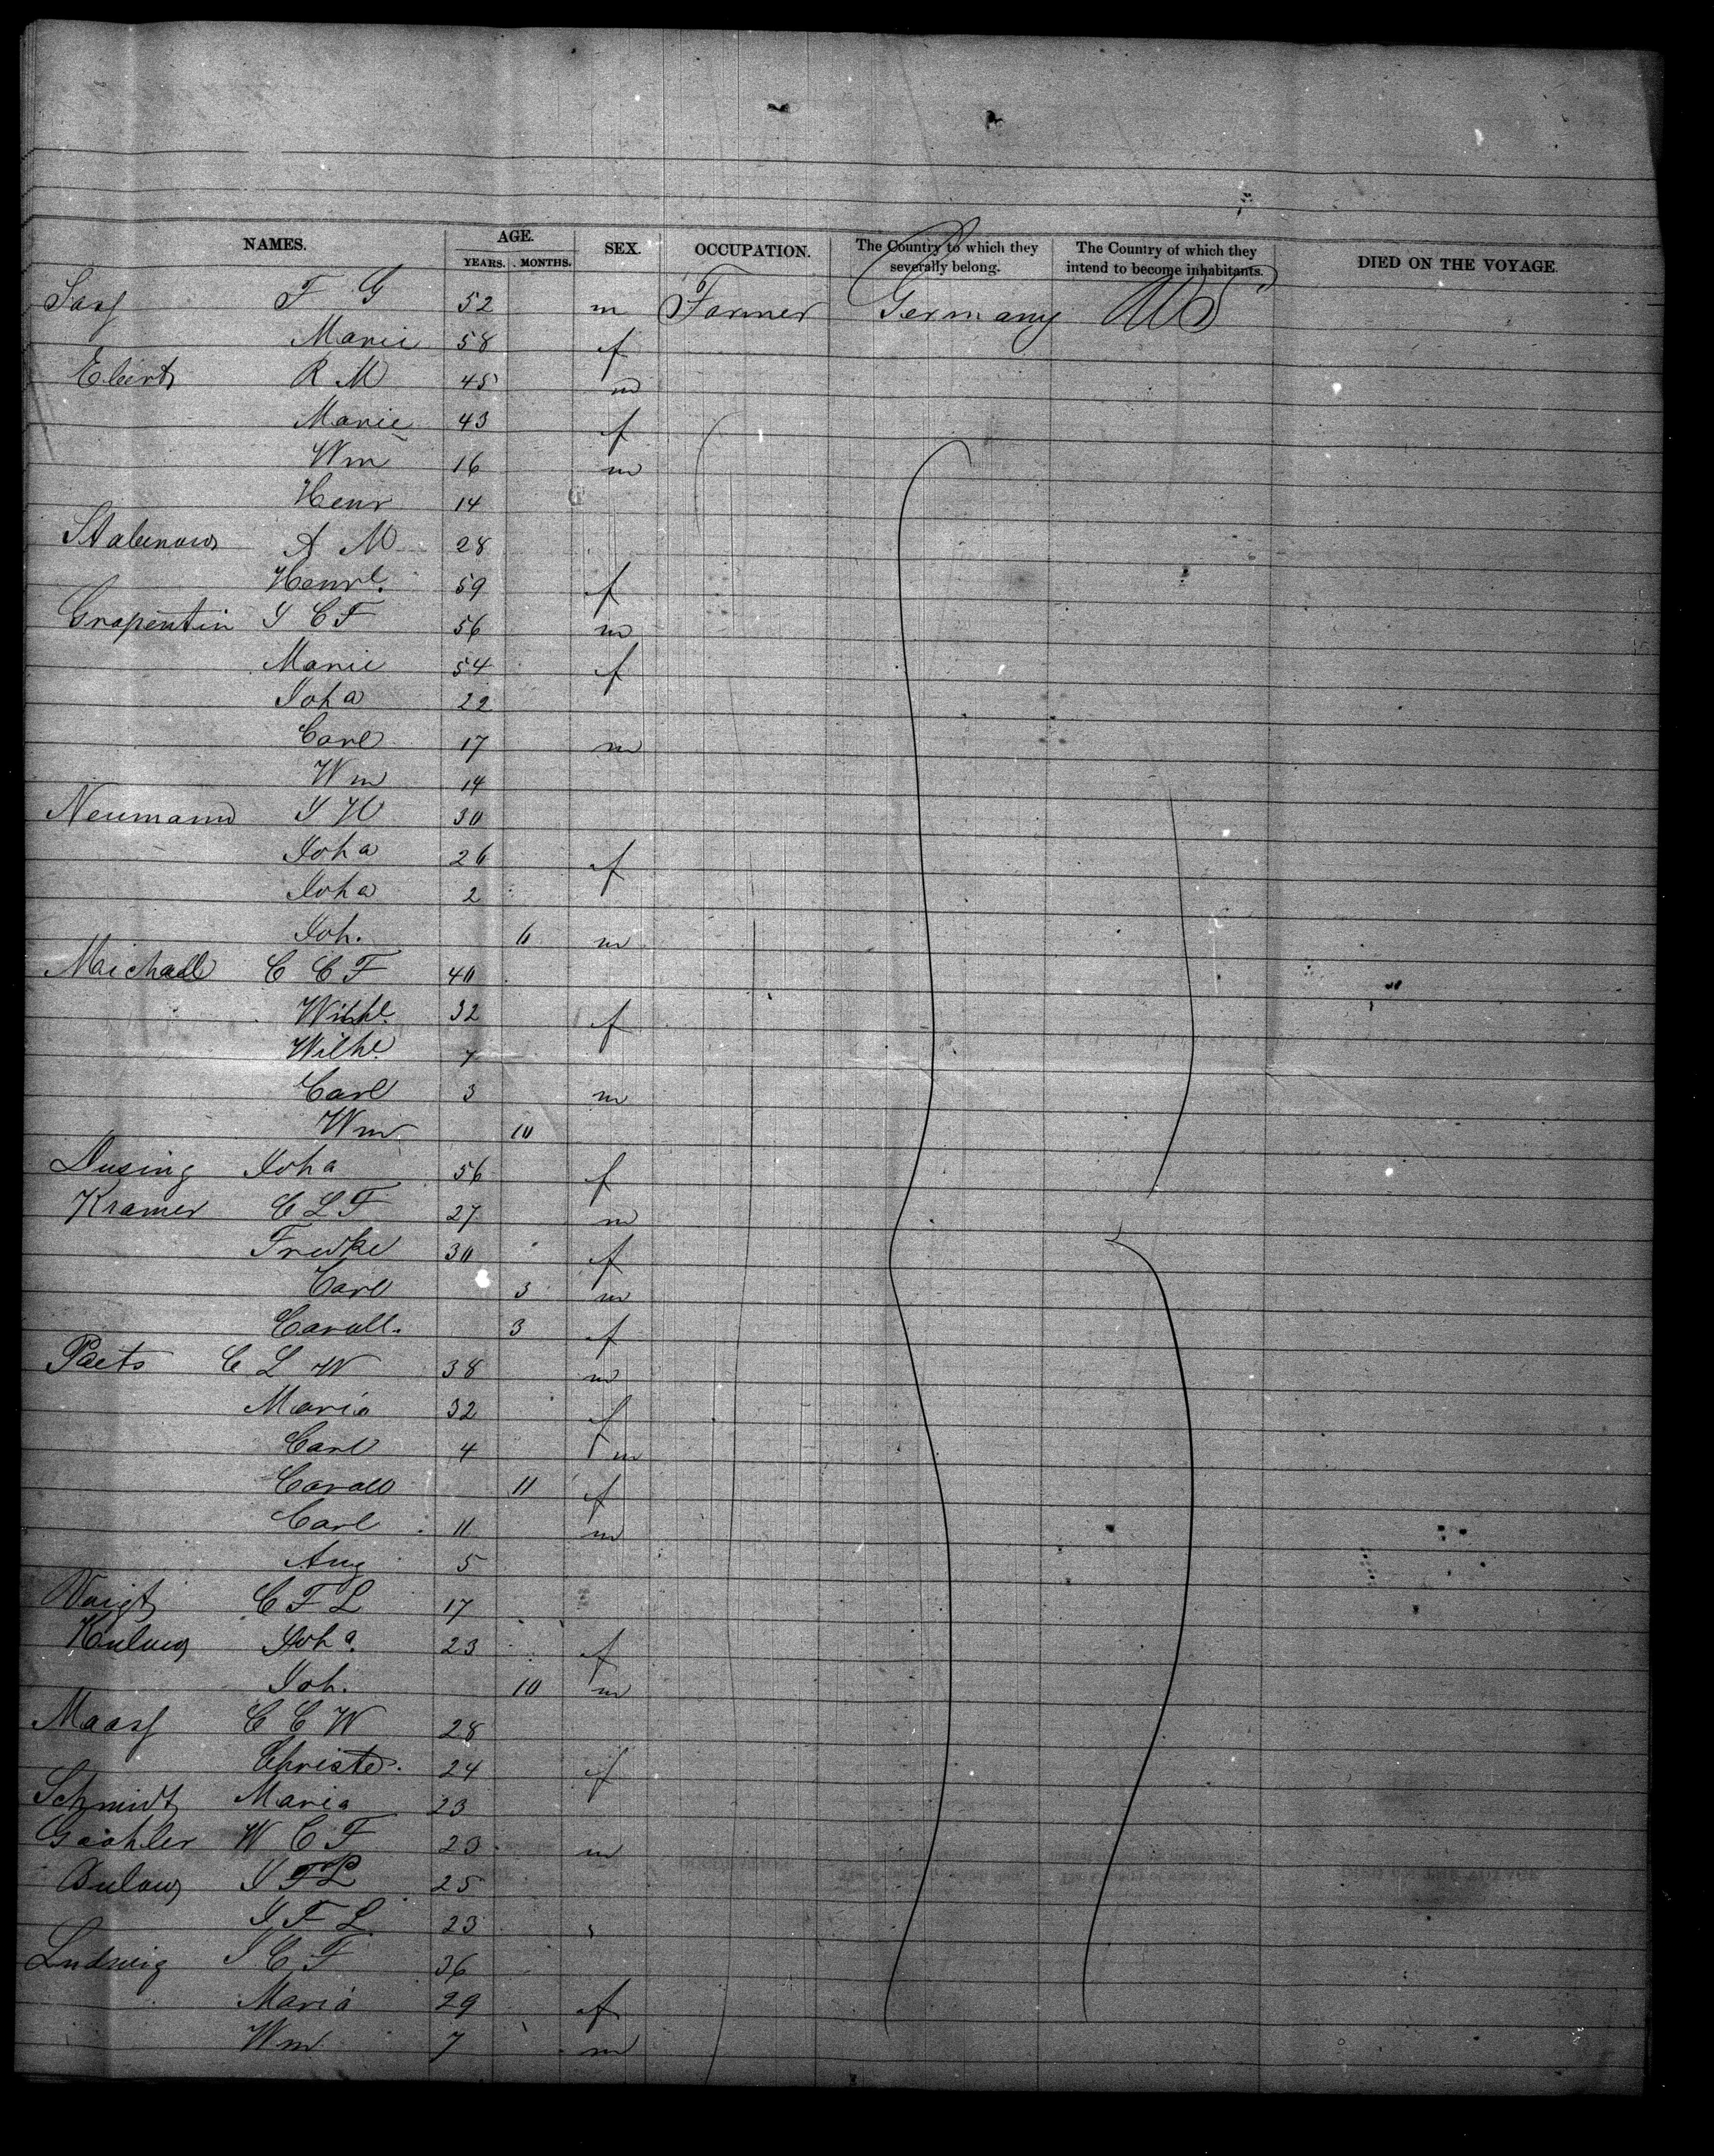 NAMES. AGE. YEARS. MONTHS. SEX. OCCUPATION. The Country to which they severally belong. The Country of which they intend to become inhabitants. DIED ON THE VOYAGE.
Sasf F G 52 m Farmer Germany US
Marie 58 f
Ebert R M 45 m
Marie 43 f
Wm 16 m
Henr 14
Stabenow A M 28
Henrl. 59 f
Grapentin J C F 56 m
Marie 54 f
Joha 22
Carl 17 m
Wm 14
Neumann J H 30
Joha 26 f
Joha 2
Joh. 6 m
Maichael C C F 40
Wilhl. 32 f
Wilhl. 7
Carl 3 m
Wm 10
Dusing Joha 56 f
Kramer C L F 27 m
Fredke 30 f
Carl 3 m
Caroll. 3 f
Paets C L W 38 m
Maria 32 f
Carl 4 m
Carol 11 f
Carl 11 m
Aug 5
Voigt C F L 17
Joha 23 f
Joh. 10 m
Maasf C C W 28
Christe. 24 f
Schmidt Maria 23
W C F 23 m
Bulow J F L 25
J F L 23
Ludwig J C F 36
Maria 29 f
Wm 7 m